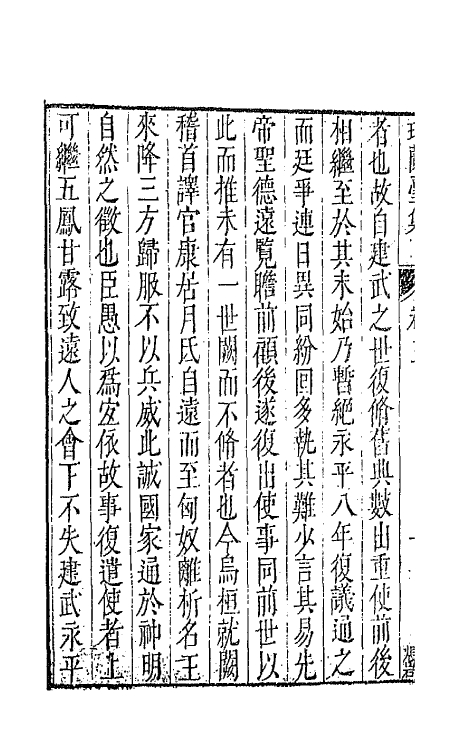 者也故自建武之世復脩舊典數出重使前後
相繼至於其末始乃暫絕永平八年復議通之
而廷爭連日異同紛回多執其難少言其易先
帝聖德遠覽瞻前顧後遂復出使事同前世以
此而推未有一世闕而不脩者也今烏桓就闕
稽首譯官康居月氏自遠而至匈奴離析名王
來降三方歸服不以兵威此誠國家通於神明
自然之徵也臣愚以爲宜依故事復遣使者上
可繼五鳳甘露致遠人之會下不失建武永平